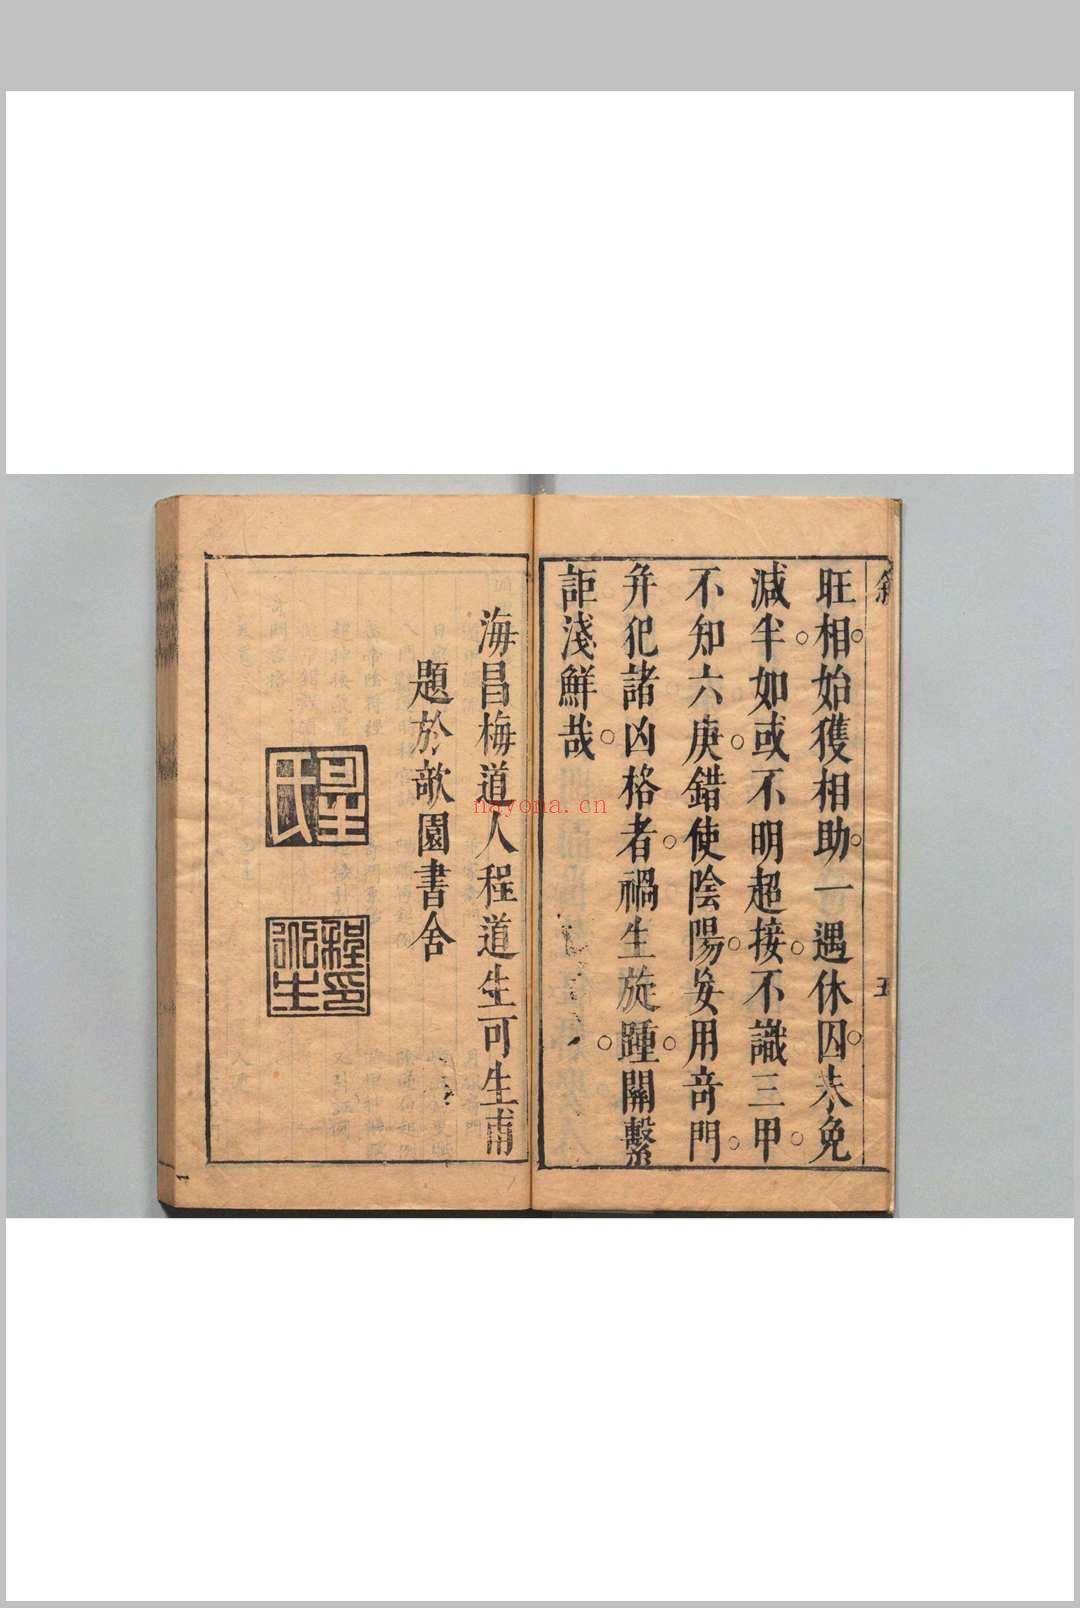 敘
五
旺相始獲相助一遇休囚未免
減半如或不明超接不識三甲
不知六庚錯使陰陽妄用奇門
弁犯諸凶格者禍生旋踵關繫
詎淺鮮哉
海昌梅道人程道生可生甫
題於敝園書舍
程印
nayona.cn